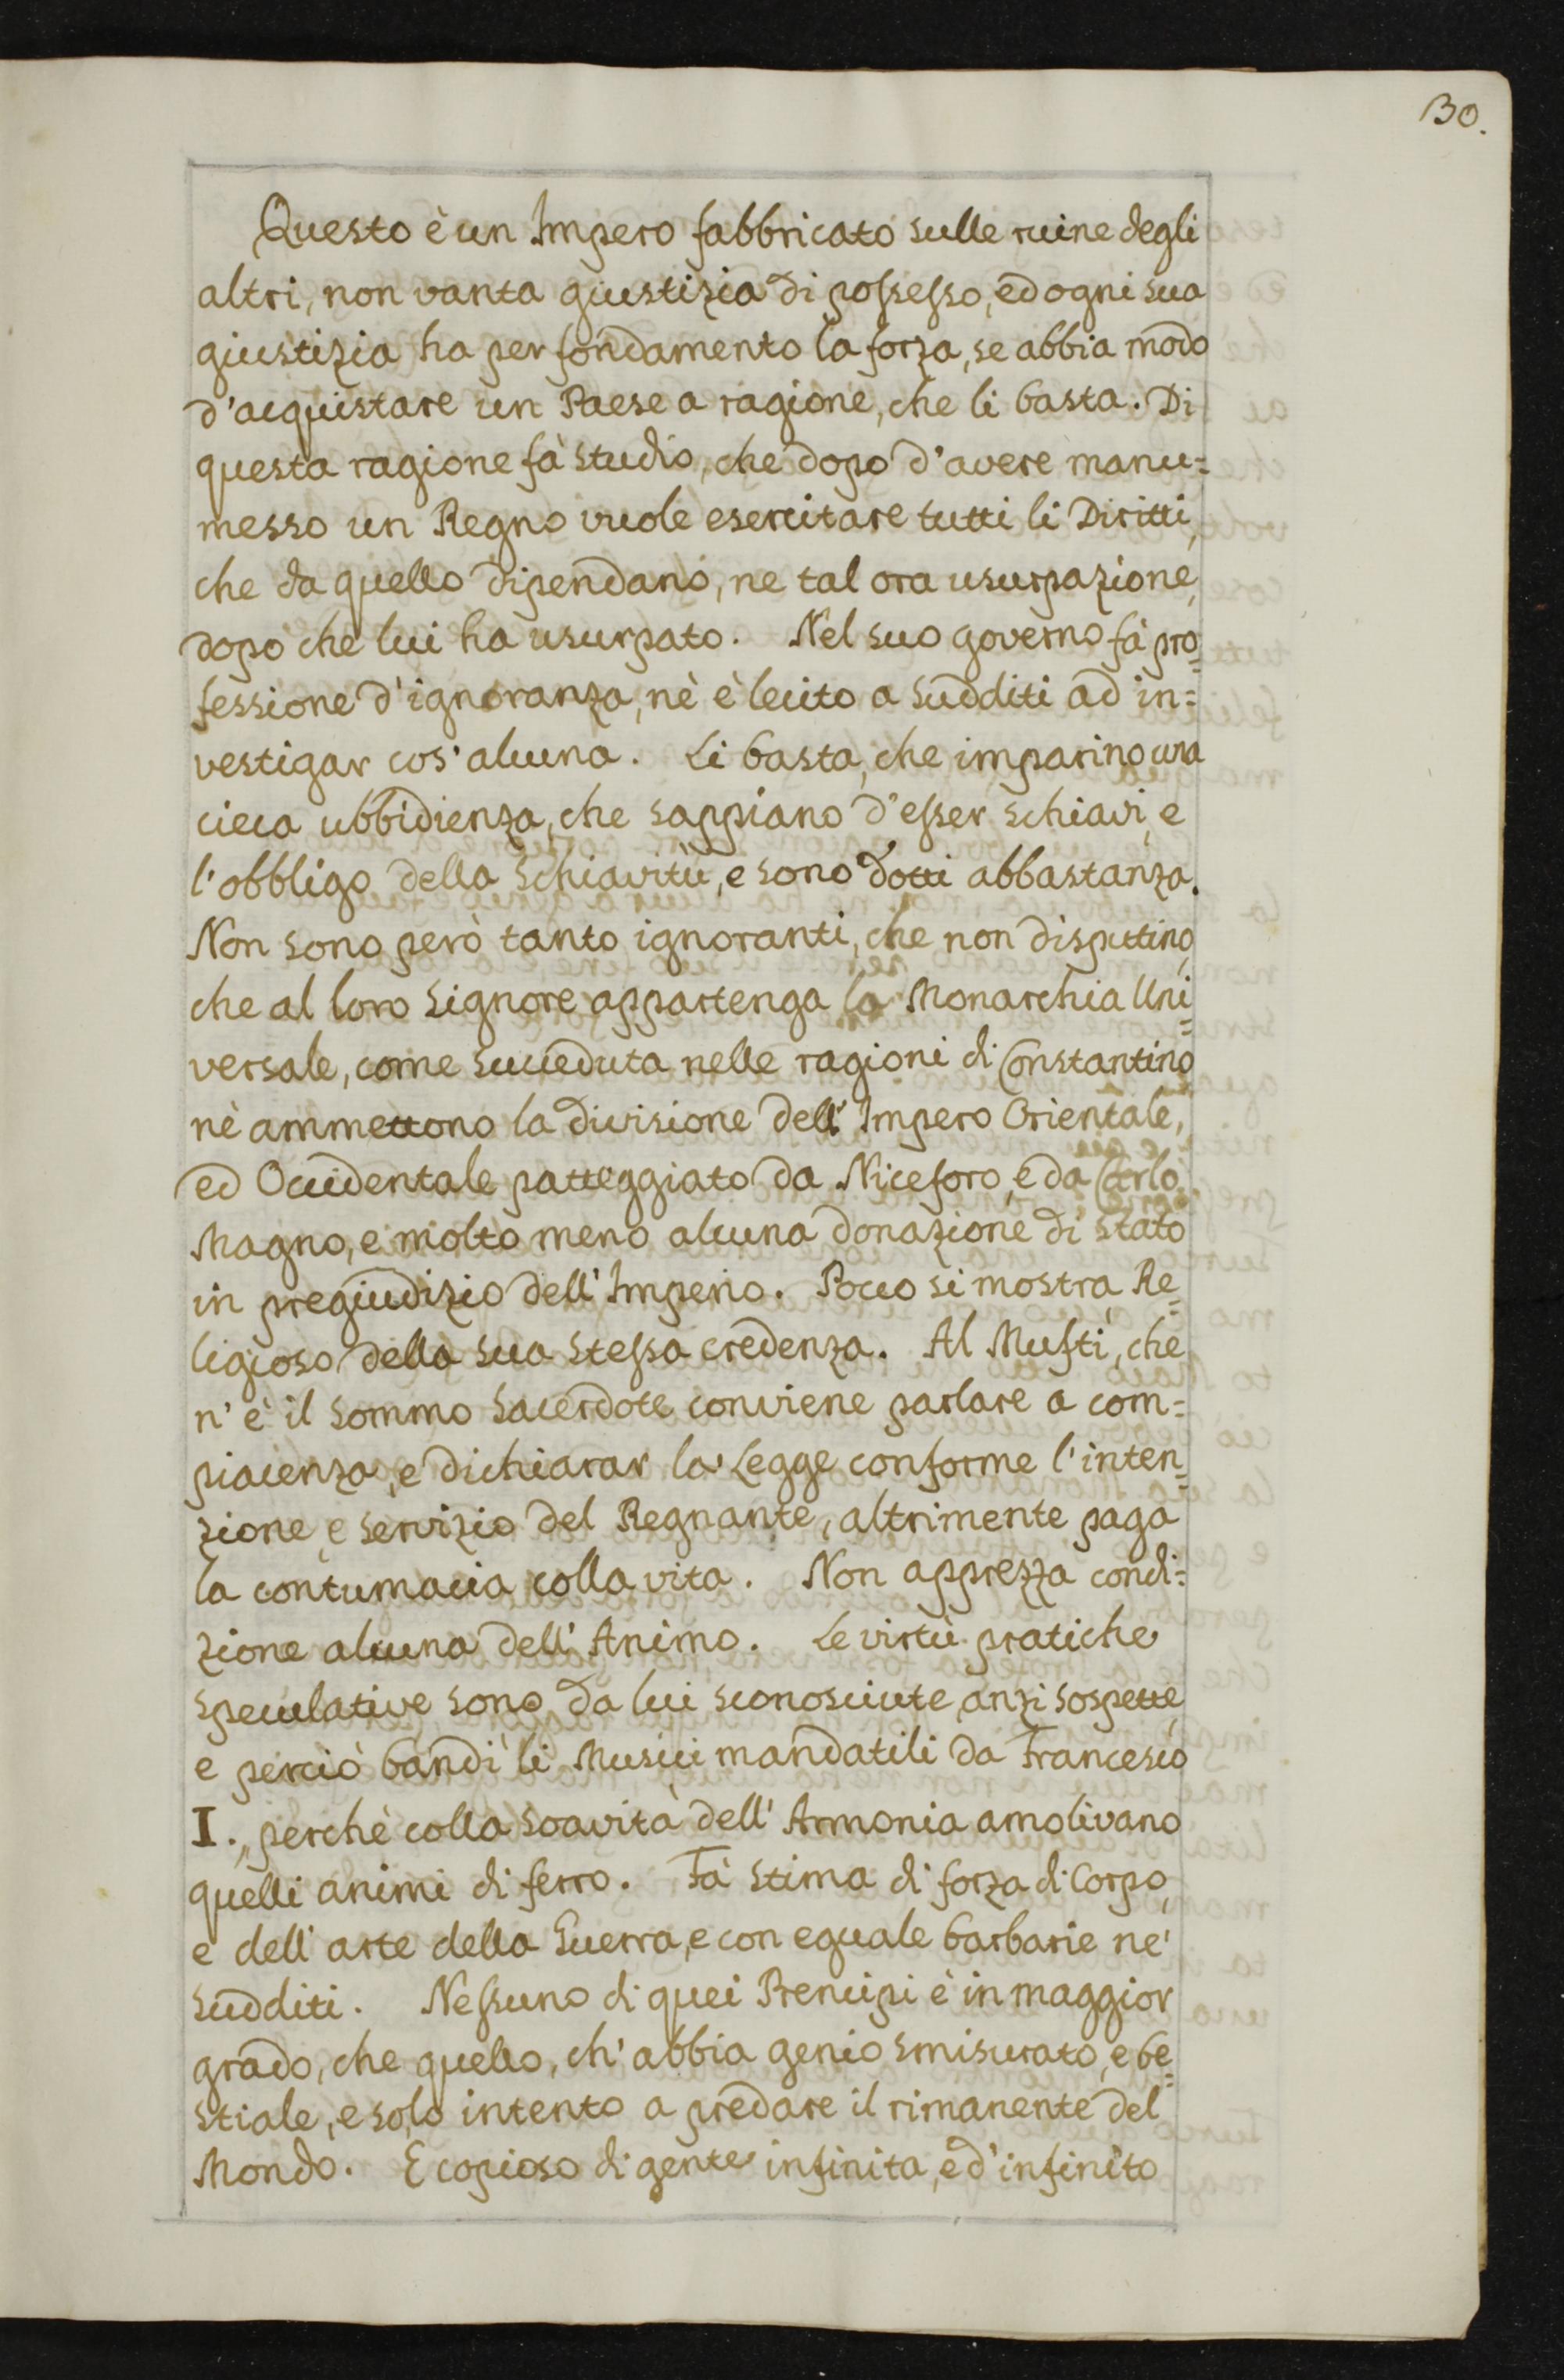 30.
Questo è un Impero fabbricato sulle ruine degli
altri, non vanta giustizia di possesso, ed ogni sua
giustizia ha per fondamento la forza, se abbia modo
d'acquistare un Paese a ragione, che li basta. Di
questa ragione fà studio, che dopo d'avere manu=
messo un Regno vuole esercitare tutti li Diritti,
che da quello dipendano, ne tal ora usurpazione,
dopo che lui ha usurpato. Nel suo governo fà pro=
fessione d'ignoranza, nè è lecito a sudditi ad in=
vestigar cos' alcuna. Li basta, che imparino una
cieca ubbidienza, che sappiano d'esser schiavi, e
l'obbligo della schiavitù, e sono dotti abbastanza.
Non sono però tanto ignoranti, che non disputtino,
che al loro Signore appartenga la Monarchia Uni=
versale, come succeduta nelle ragioni di Constantino
nè ammettono la divisione dell' Impero Orientale,
ed Occidentale patteggiato da Niceforo, e da Carlo
Magno, e molto meno alcuna donazione di stato
in pregiudizio dell' Imperio. Poco si mostra Re=
ligioso della sua stessa credenza. Al Muftì, che
n' è il sommo Sacerdote conviene parlare a com=
piacenza, e dichiarar la Legge conforme l'inten=
zione, e servizio del Regnante, altrimente paga
la contumacia colla vita. Non apprezza condi=
zione alcuna dell' Animo. Le virtù pratiche
speculative sono da lui sconosciute, anzi sospette,
e perciò bandì li Musici mandatili da Francesco
I., perchè colla soavità dell' Armonia amolivano
quelli animi di ferro. Fà stima di forza di Corpo,
e dell' arte della Guerra, e con eguale barbarie ne'
sudditi. Nessuno di quei Prencipi è in maggior
grado, che quello, ch' abbia genio smisurato, e be=
stiale, e solo intento a predare il rimanente del
Mondo. È copioso di gente infinita, e d'infinito